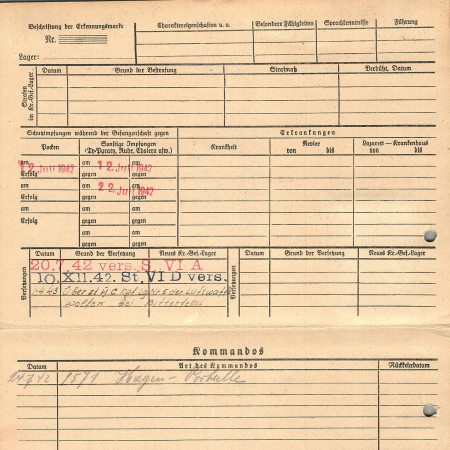 Beschriftung der Erkennungsmarke
Nr.
Lager:
Charaktereigenschaften u. a.
Besondere Fähigkeiten
Sprachkenntnisse
Führung
Strafen im Kr.-Gef.-Lager
Datum
Grund der Bestrafung
Strafmaß
Verbüßt, Datum
Schutzimpfungen während der Gefangenschaft gegen
Erkrankungen
Pocken
Sonstige Impfungen
(Ty-Paraty, Ruhr, Cholera usw.)
Krankheit
Revier
von bis
Lazarett – Krankenhaus
von bis
am 12. Juli 1942
am 12. Juli 1942
Erfolg
gegen
gegen
am
am 22. Juli 1942
Erfolg
gegen
gegen
am
am
am
Erfolg
gegen
gegen
am
am
gegen
gegen
Versetzungen
Datum
Grund der Versetzung
Neues Kr.-Gef.-Lager
Versetzungen
Datum
Grund der Versetzung
Neues Kr.-Gef.-Lager
20.7.42 vers. S. VI A
10. XII. 42. St. VI D vers.
Wolfen bei Bitterfeld
Kommandos
Datum
Art des Kommandos
Rückkehrdatum
24.7.42 1571 Hagen-